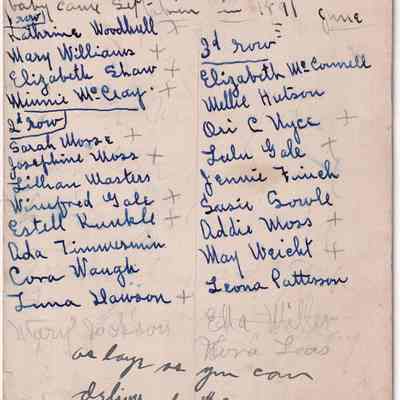 baby came Sep- in 1891 June
1 row
Kathrine Woodhull +
Mary Williams +
Elizabeth Shaw +
Minnie McCray +
2d row
Sarah Mosse +
Josephine Moss +
Lillian Masters
Winifred Gale +
Estell Kunkle +
Ada Timmermin
Cora Waugh
Luna Hawson +
Mary Jackson
3d row
Elizabeth McConnell
Mellie Hutson
Ori C Nyce +
Lulu Gale +
Jennie Finch
Susie Bowle
Addie Moss +
May Weicht +
Leona Patterson
Ella Miller
as long as you can